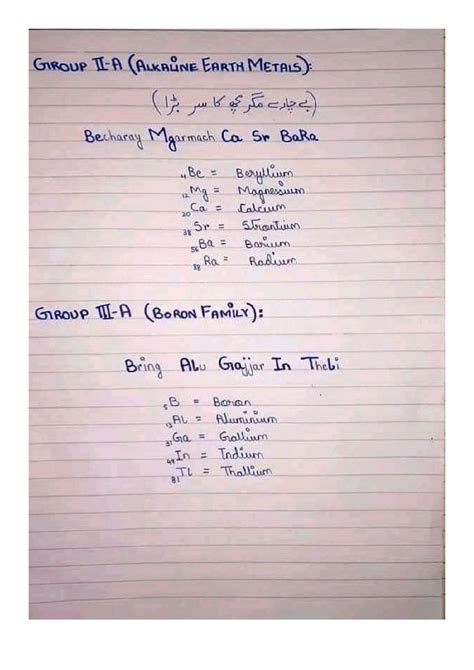 GROUP II-A (ALKALINE EARTH METALS):
(بے چارے مگر مچھ کا سر بڑا)
Becharay Mgarmach Ca Sr BaRa
4Be = Beryllium
12Mg = Magnessium
20Ca = Calcium
38Sr = Strontium
56Ba = Barium
88Ra = Radium
GROUP III-A (BORON FAMILY):
Bring Alu Gajjar In Theli
5B = Boron
13AL = Aluminium
31Ga = Gallium
49In = Indium
81TL = Thallium